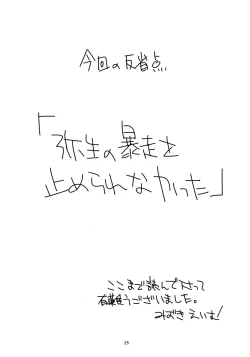 今回の反省点
「弥生の暴走を
止められなかった」
ここまで読んで下さって
有難うございました。
みずきえいむ!
25